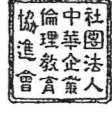 社團法人
中華企業
倫理教育
協進會